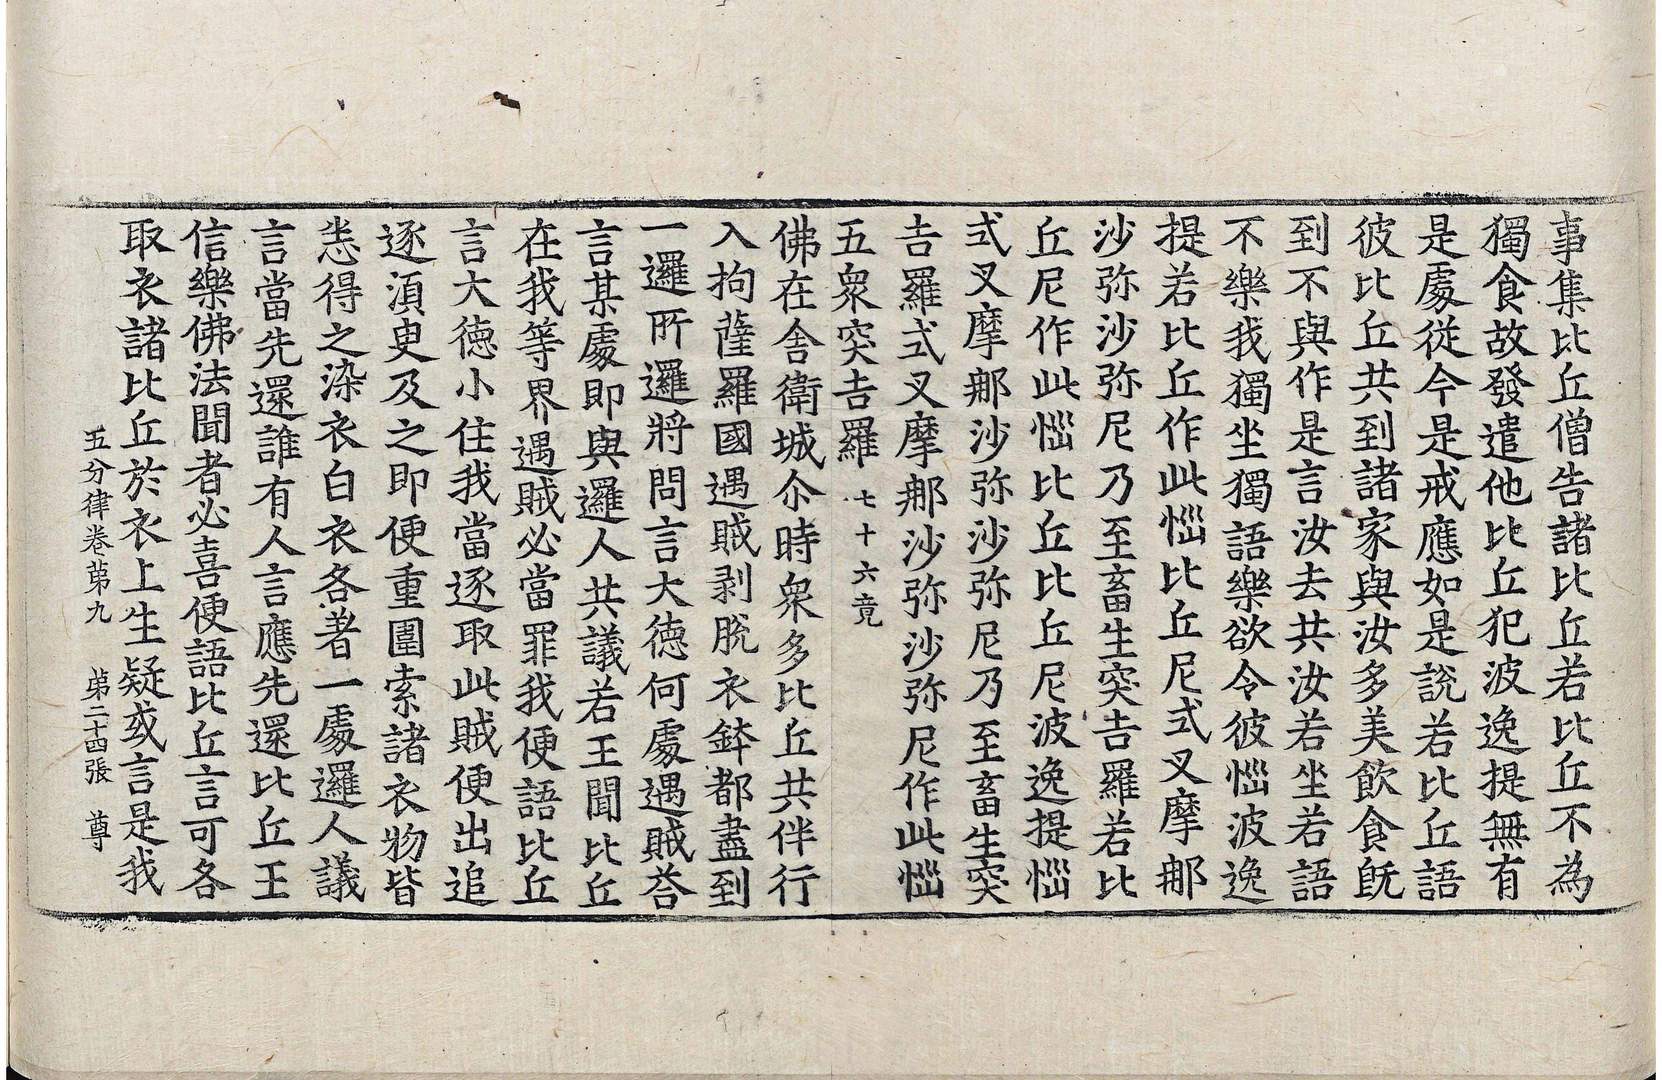 事集比丘僧告諸比丘若比丘不為
獨食故發遣他比丘犯波逸提無有
是處從今是戒應如是說若比丘語
彼比丘共到諸家與汝多美飲食旣
到不與作是言汝去共汝若坐若語
不樂我獨坐獨語樂欲令彼惱波逸
提若比丘作此惱比丘尼式叉摩那
沙弥沙弥尼乃至畜生突吉羅若比
丘尼作此惱比丘比丘尼波逸提惱
式叉摩那沙弥沙弥尼乃至畜生突
吉羅式叉摩那沙弥沙弥尼作此惱
五衆突吉羅 七十六竟
佛在舍衛城尒時衆多比丘共伴行
入拘薩羅國遇賊剥脫衣鉢都盡到
一邏所邏將問言大德何處遇賊荅
言某處即與邏人共議若王聞比丘
在我等界遇賊必當罪我便語比丘
言大德小住我當逐取此賊便出追
逐湏臾及之即便重圍索諸衣物皆
悉得之染衣白衣各著一處邏人議
言當先還誰有人言應先還比丘王
信樂佛法聞者必喜便語比丘言可各
取衣諸比丘於衣上生疑或言是我
五分律卷苐九 苐二十四張 尊